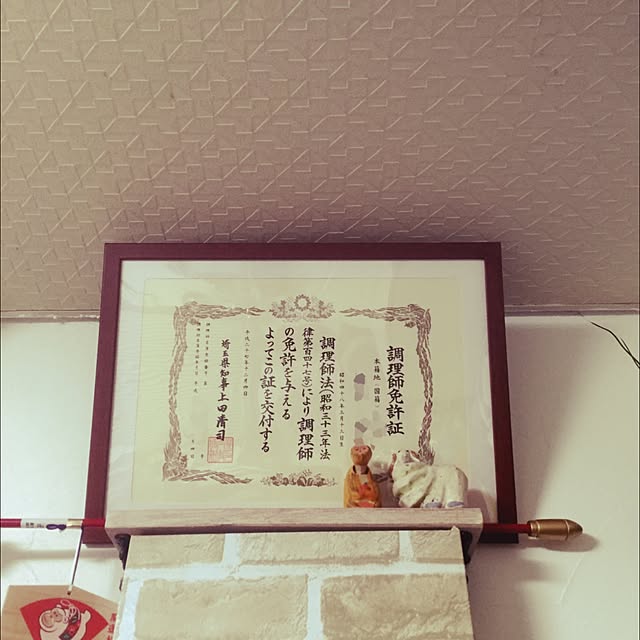 調理師免許証
本籍地 国籍
昭和四十八年三月十三日生
調理師法(昭和三十三年法
律第百四十七号)により調理師
の免許を与える
よってこの証を交付する
平成二十七年十二月四日
埼玉県知事上田清司